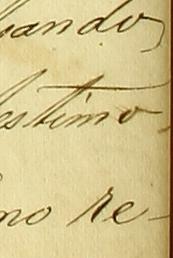 sando,
estimo,
no re-